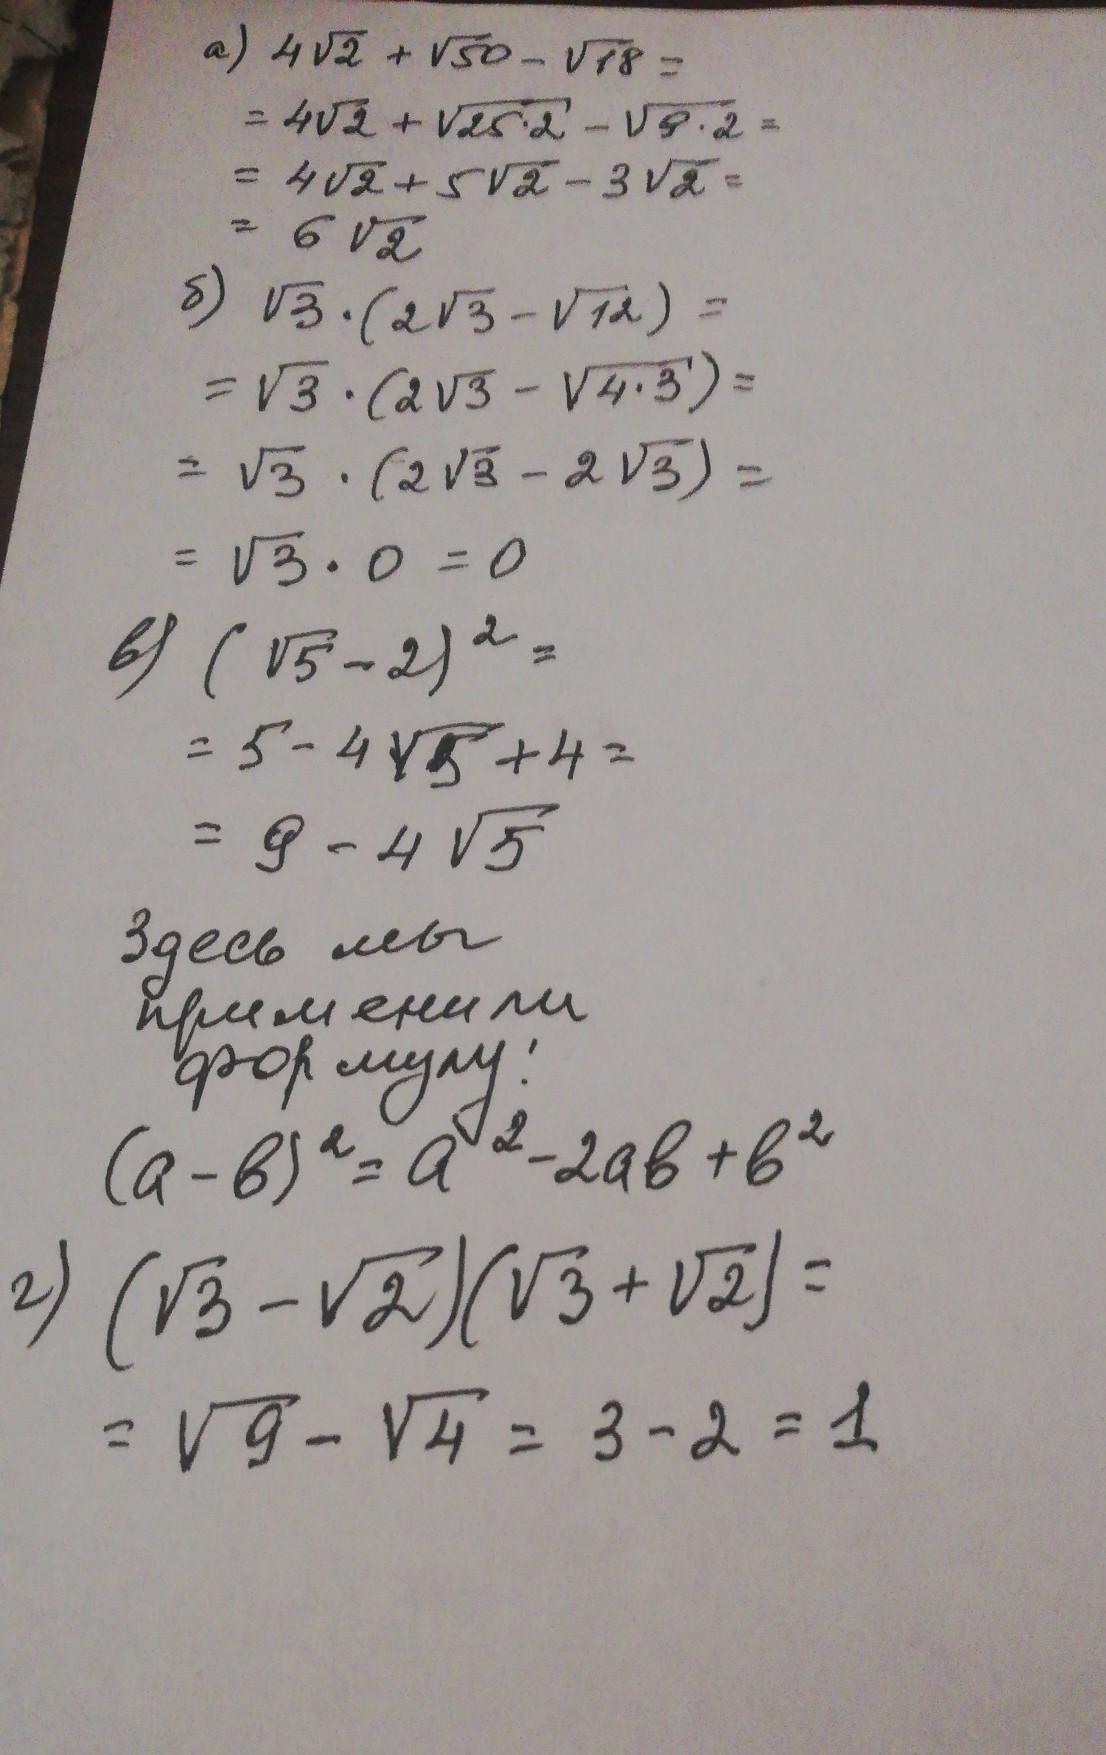 а) 4√2 + √50 - √18 =
= 4√2 + √25·2 - √9·2 =
= 4√2 + 5√2 - 3√2 =
= 6√2
б) √3·(2√3 - √12) =
= √3·(2√3 - √4·3) =
= √3·(2√3 - 2√3) =
= √3·0 = 0
в) (√5 - 2)² =
= 5 - 4√5 + 4 =
= 9 - 4√5
Здесь мы
применили
формулу:
(а - в)² = а² - 2ав + в²
г) (√3 - √2)(√3 + √2) =
= √9 - √4 = 3 - 2 = 1